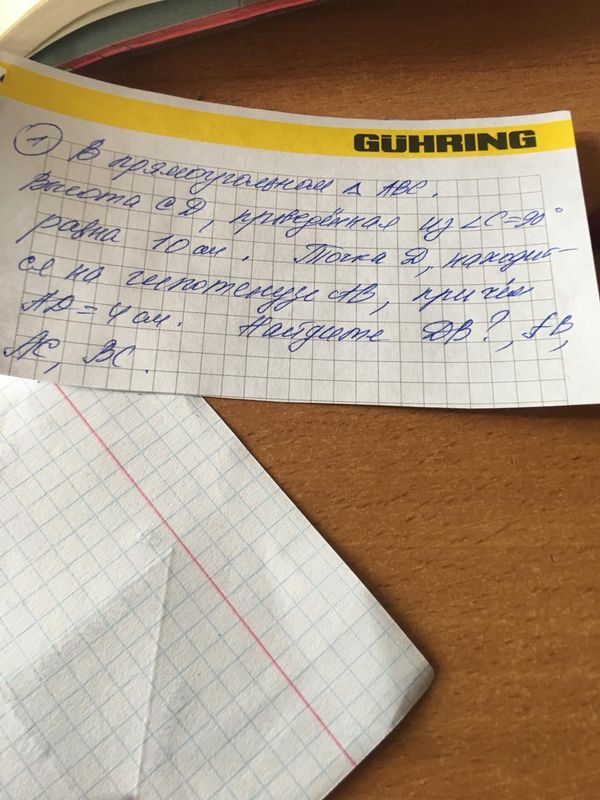 GÜHRING
1 В прямоугольном Δ ABC.
Высота CD, проведённая из ∠C=90°
равна 10 см. Точка D, находит-
ся на гипотенузе AB, причём
AD=4 см. Найдите DB?, AB,
AC, BC.